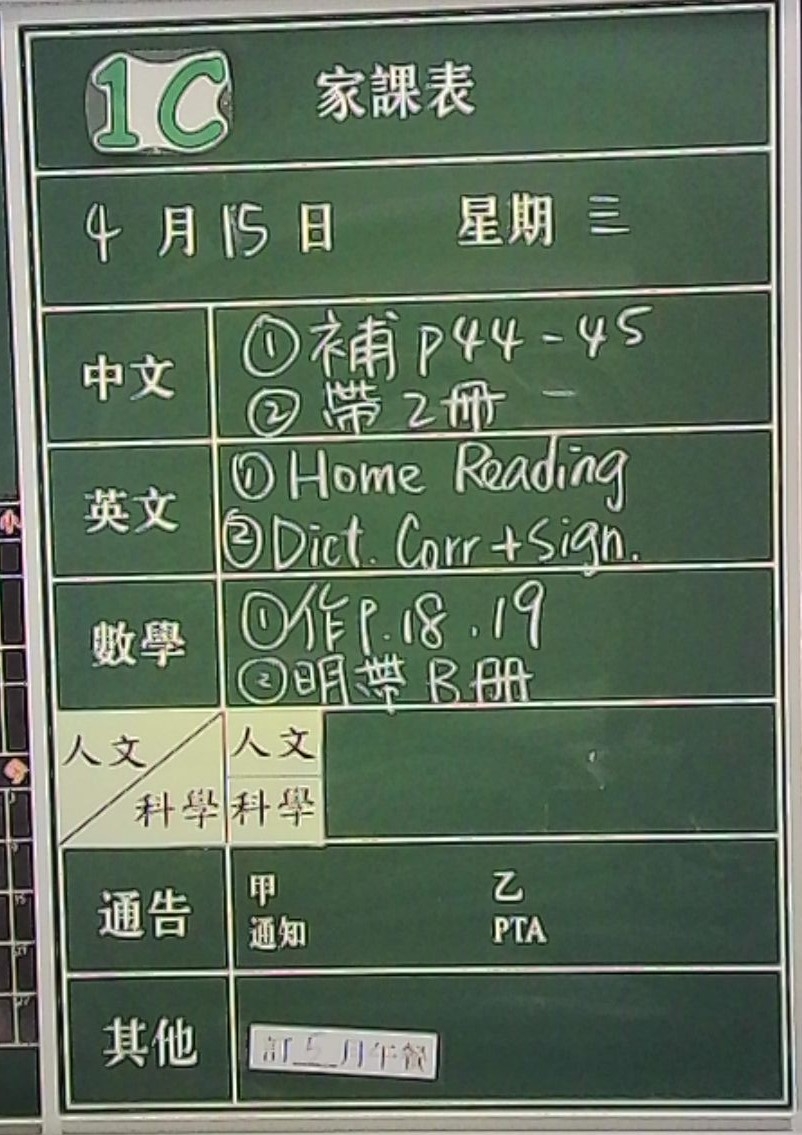 1C 家課表
4月15日 星期三
中文
①補 P44-45
②帶2冊
英文
①Home Reading
②Dict. Corr + Sign.
數學
①作P.18.19
②明帶B册
人文
科學
人文
科學
通告
甲 乙
通知 PTA
其他
訂5月午餐